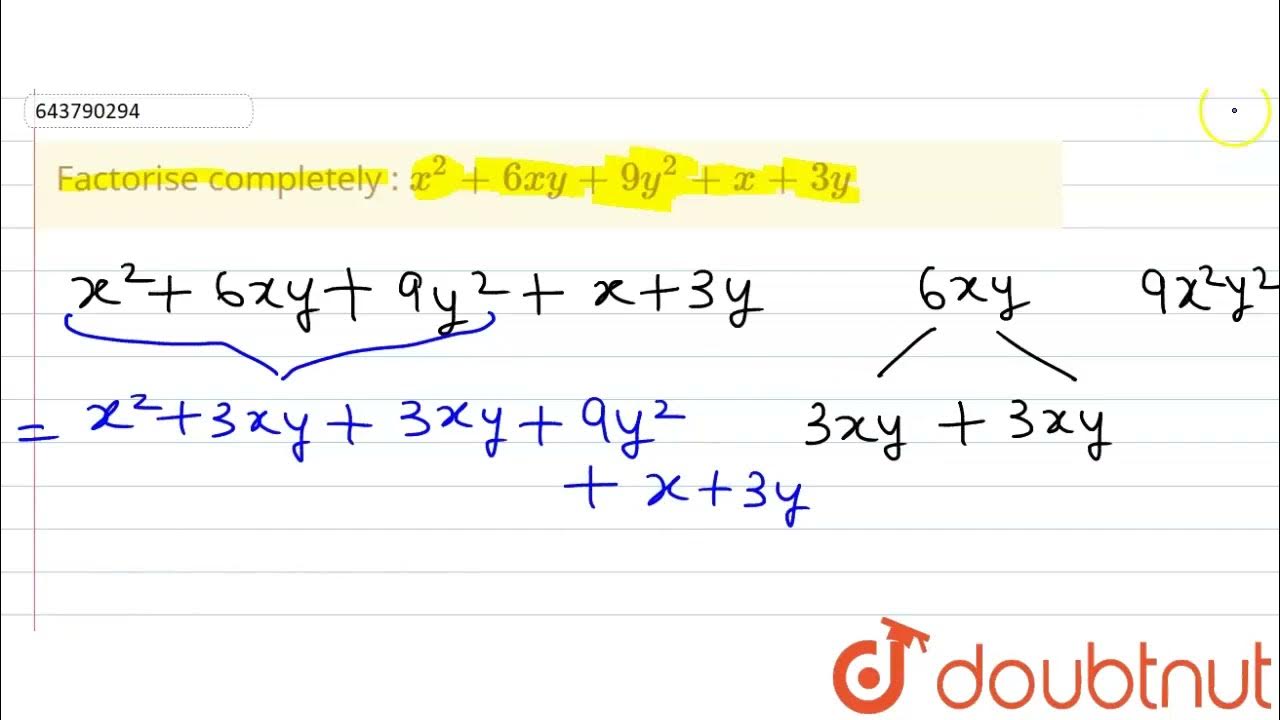 643790294
Factorise completely : x² + 6xy + 9y² + x + 3y
x² + 6xy + 9y² + x + 3y
6xy
9x²y²
= x² + 3xy + 3xy + 9y²
3xy + 3xy
+ x + 3y
doubtnut